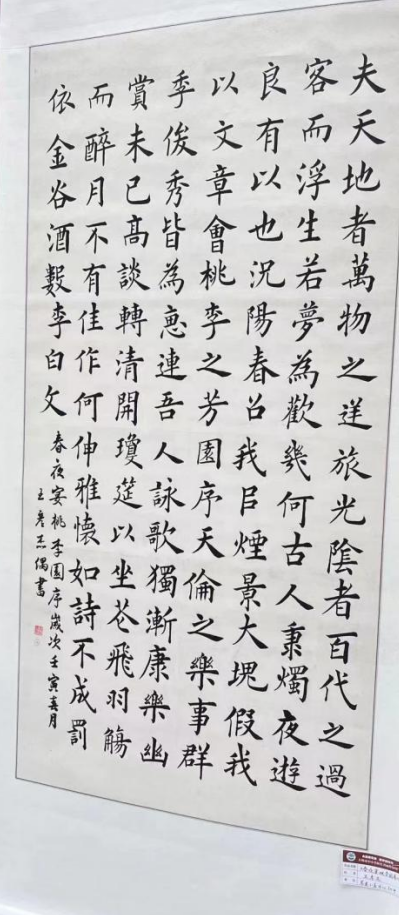 夫天地者萬物之逆旅光陰者百代之過
客而浮生若夢為歡幾何古人秉燭夜遊
良有以也況陽春召我㠯煙景大塊假我
以文章會桃李之芳園序天倫之樂事群
季俊秀皆為惠連吾人詠歌獨漸康樂幽
賞未已高談轉清開瓊筵以坐花飛羽觴
而醉月不有佳作何伸雅懷如詩不成罰
依金谷酒數李白文
春夜宴桃李園序歲次壬寅月
王彦偶書